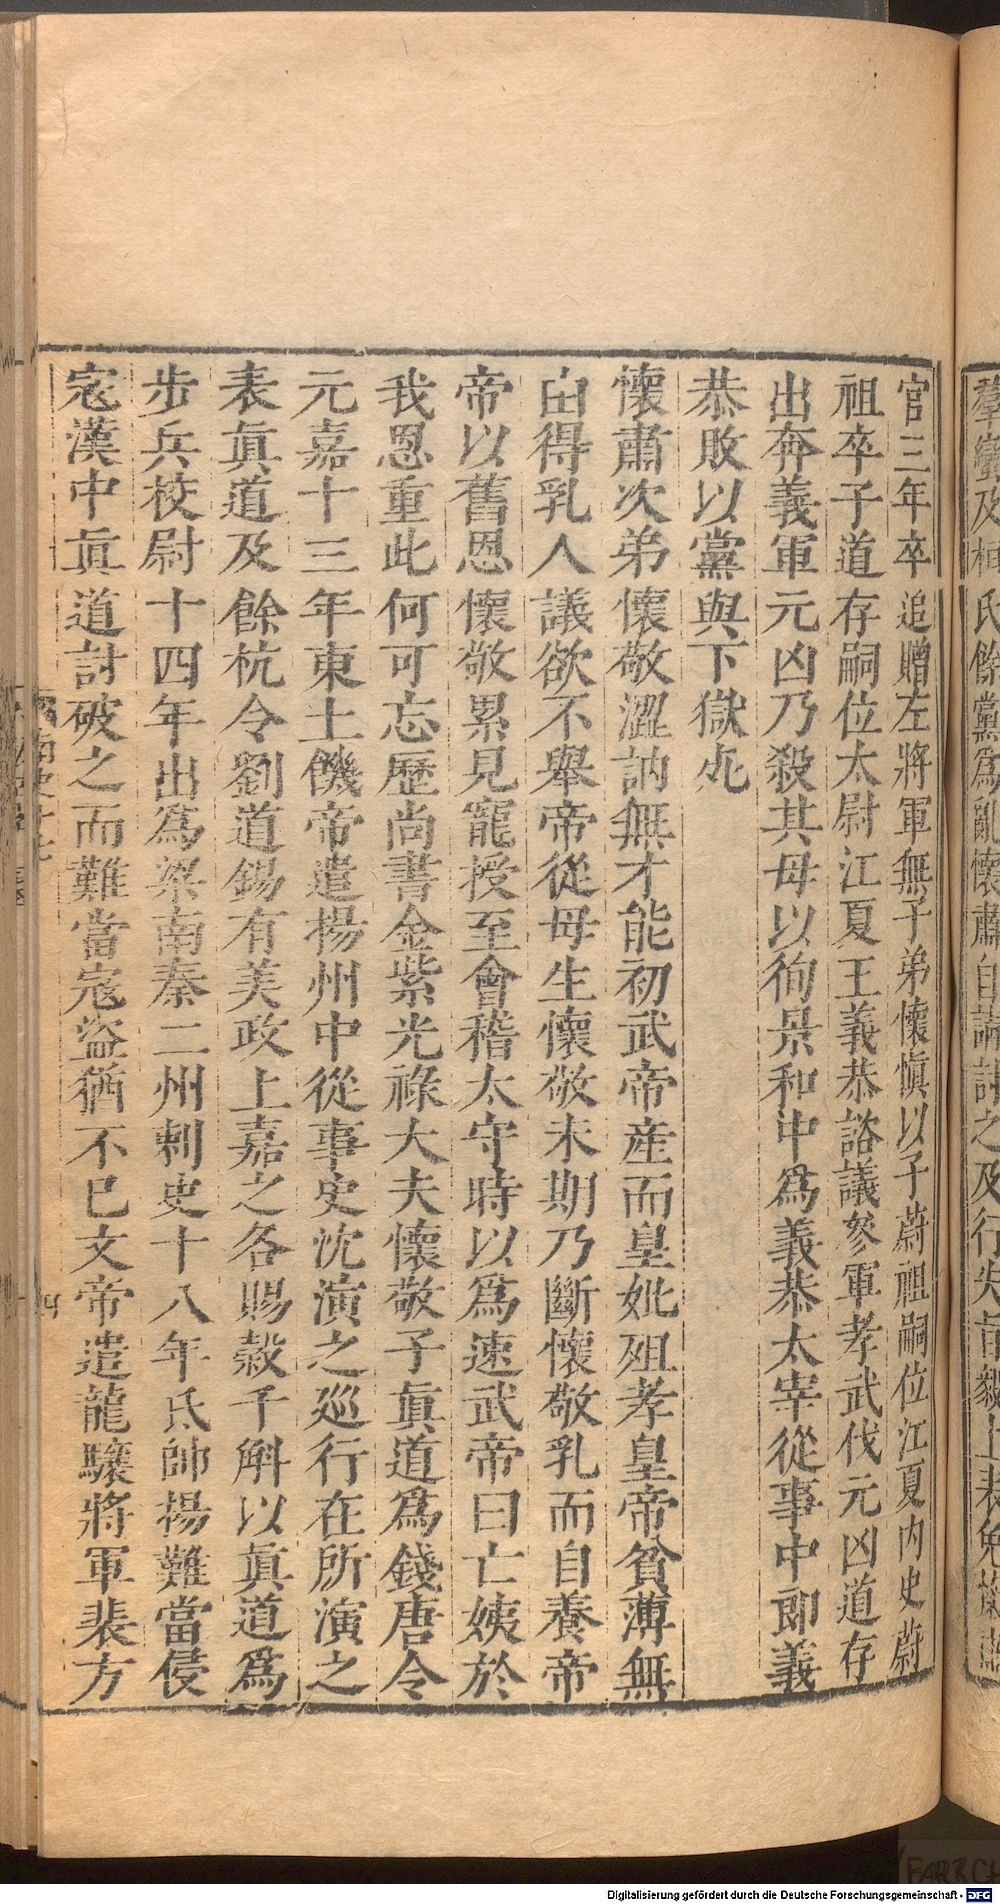 羣蠻及桓氏餘黨爲亂懷肅自請討之及行失旨毅上表免懷肅
官三年卒追贈左將軍無子弟懷愼以子蔚祖嗣位江夏內史蔚
祖卒子道存嗣位太尉江夏王義恭諮議參軍孝武伐元凶道存
出奔義軍元凶乃殺其母以徇景和中爲義恭太宰從事中郎義
恭敗以黨與下獄死
懷肅次弟懷敬澀訥無才能初武帝產而皇妣殂孝皇帝貧薄無
由得乳人議欲不舉帝從母生懷敬未期乃斷懷敬乳而自養帝
帝以舊恩懷敬累見寵授至會稽太守時以爲速武帝曰亡姨於
我恩重此何可忘歷尚書金紫光祿大夫懷敬子眞道爲錢唐令
元嘉十三年東土饑帝遣揚州中從事史沈演之巡行在所演之
表眞道及餘杭令劉道錫有美政上嘉之各賜穀千斛以眞道爲
步兵校尉十四年出爲梁南秦二州刺史十八年氐帥楊難當侵
寇漢中眞道討破之而難當寇盜猶不已文帝遣龍驤將軍裴方
Digitalisierung gefördert durch die Deutsche Forschungsgemeinschaft - DFG